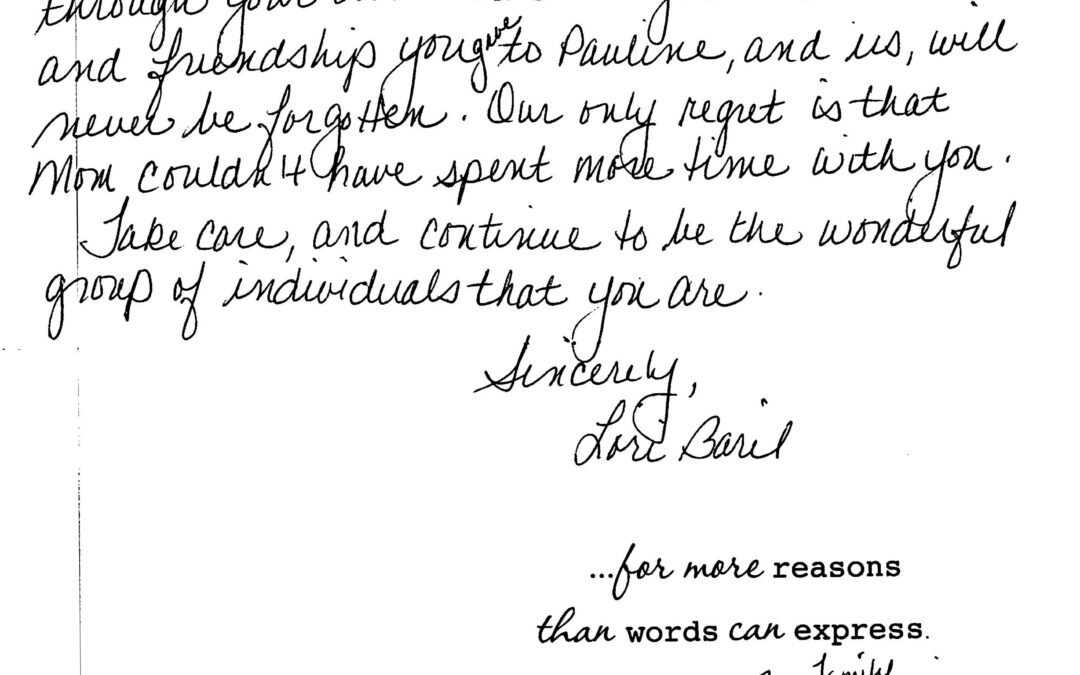 through your
and friendship you gave to Pauline, and us, will
never be forgotten. Our only regret is that
Mom couldn't have spent more time with you.
Take care, and continue to be the wonderful
group of individuals that you are.
Sincerely,
Lori Baril
...for more reasons
than words can express.
family